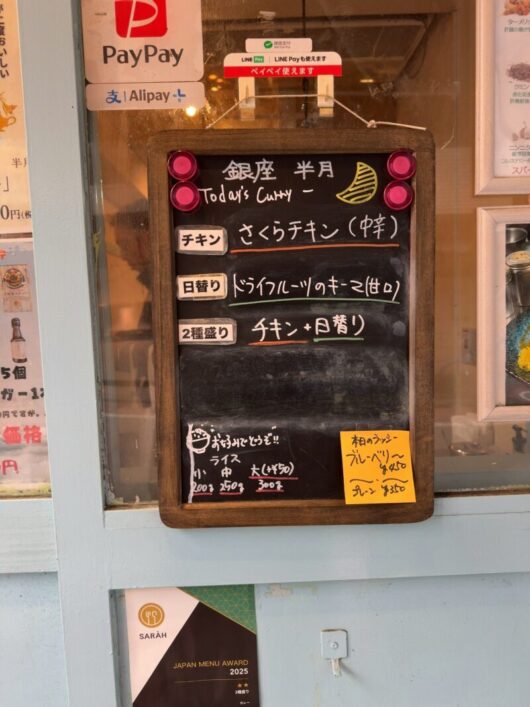 PayPay
Alipay+
LINE Pay LINE Payも使えます
ペイペイ使えます
銀座 半月
Today's Curry
チキン さくらチキン(中辛)
日替り ドライフルーツのキーマ(甘口)
2種盛り チキン+日替り
お好みでどうぞ!!
ライス
小 中 大(+¥50)
200g 250g 300g
本日のラッシー
ブルーベリー
¥450
プレーン ¥350
5個
価格
SARAH
JAPAN MENU AWARD
2025
★★